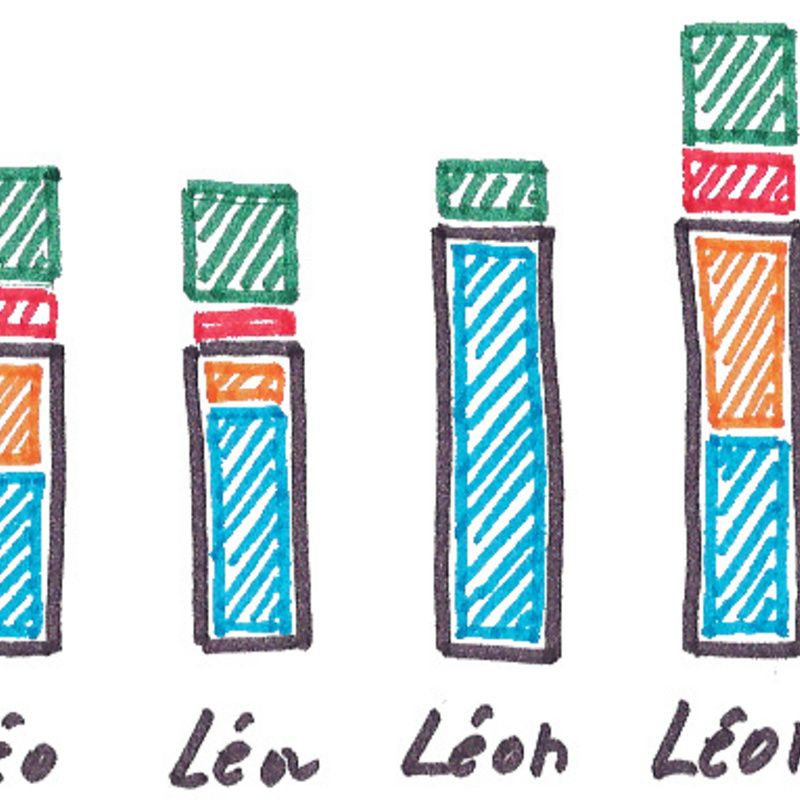 éo Léa Léon Léon